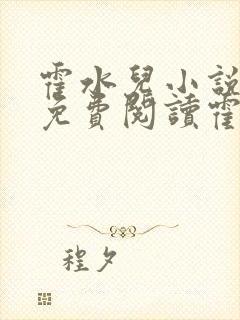 霍水兒小說
免費閱讀霍
程夕